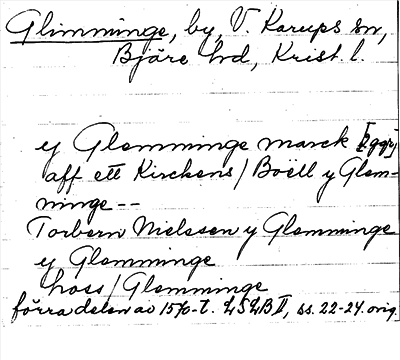 Glimminge, by, V. Karups sn,
Bjäre hd, Krist. l.
y Glomminge marck [2ggr]
aff ett Kirckens/Boëll y Glom-
minge --
Torbern Nielssen y Glomminge
y Glomminge
hoss/Glomminge
förra delen av 1570-t. LSLB II, ss. 22-24. orig.